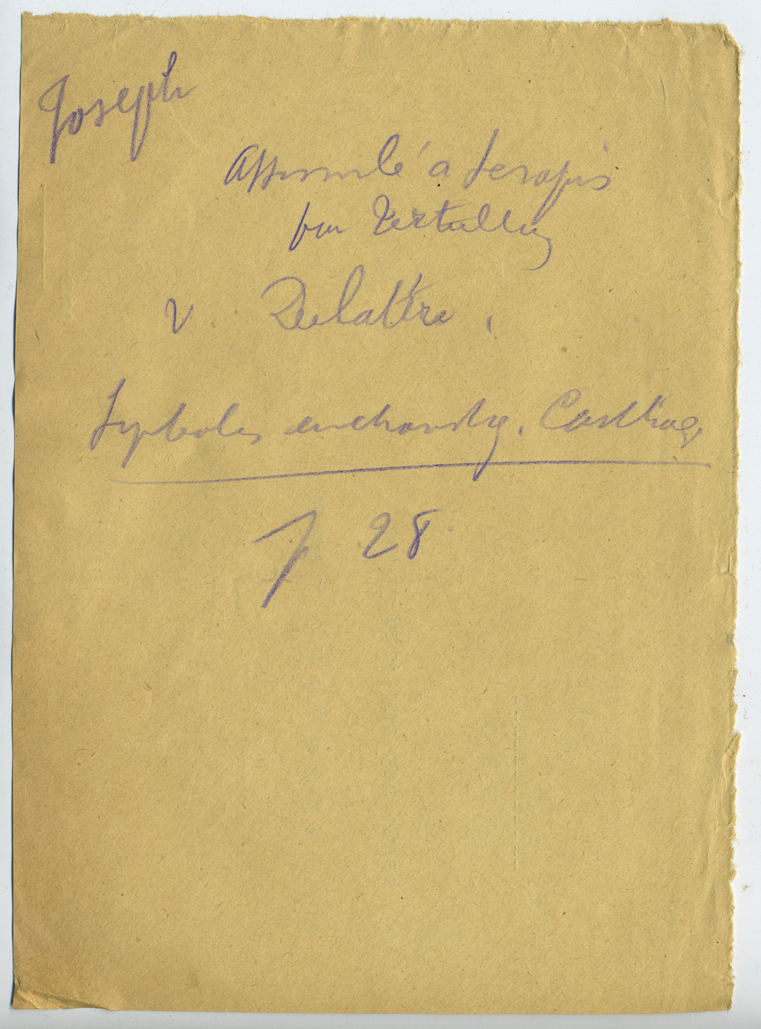 Joseph
Assimilé a Serapis
par Tertullien
v. Delattre,
Symboles eucharistiq. Carthage
p 28